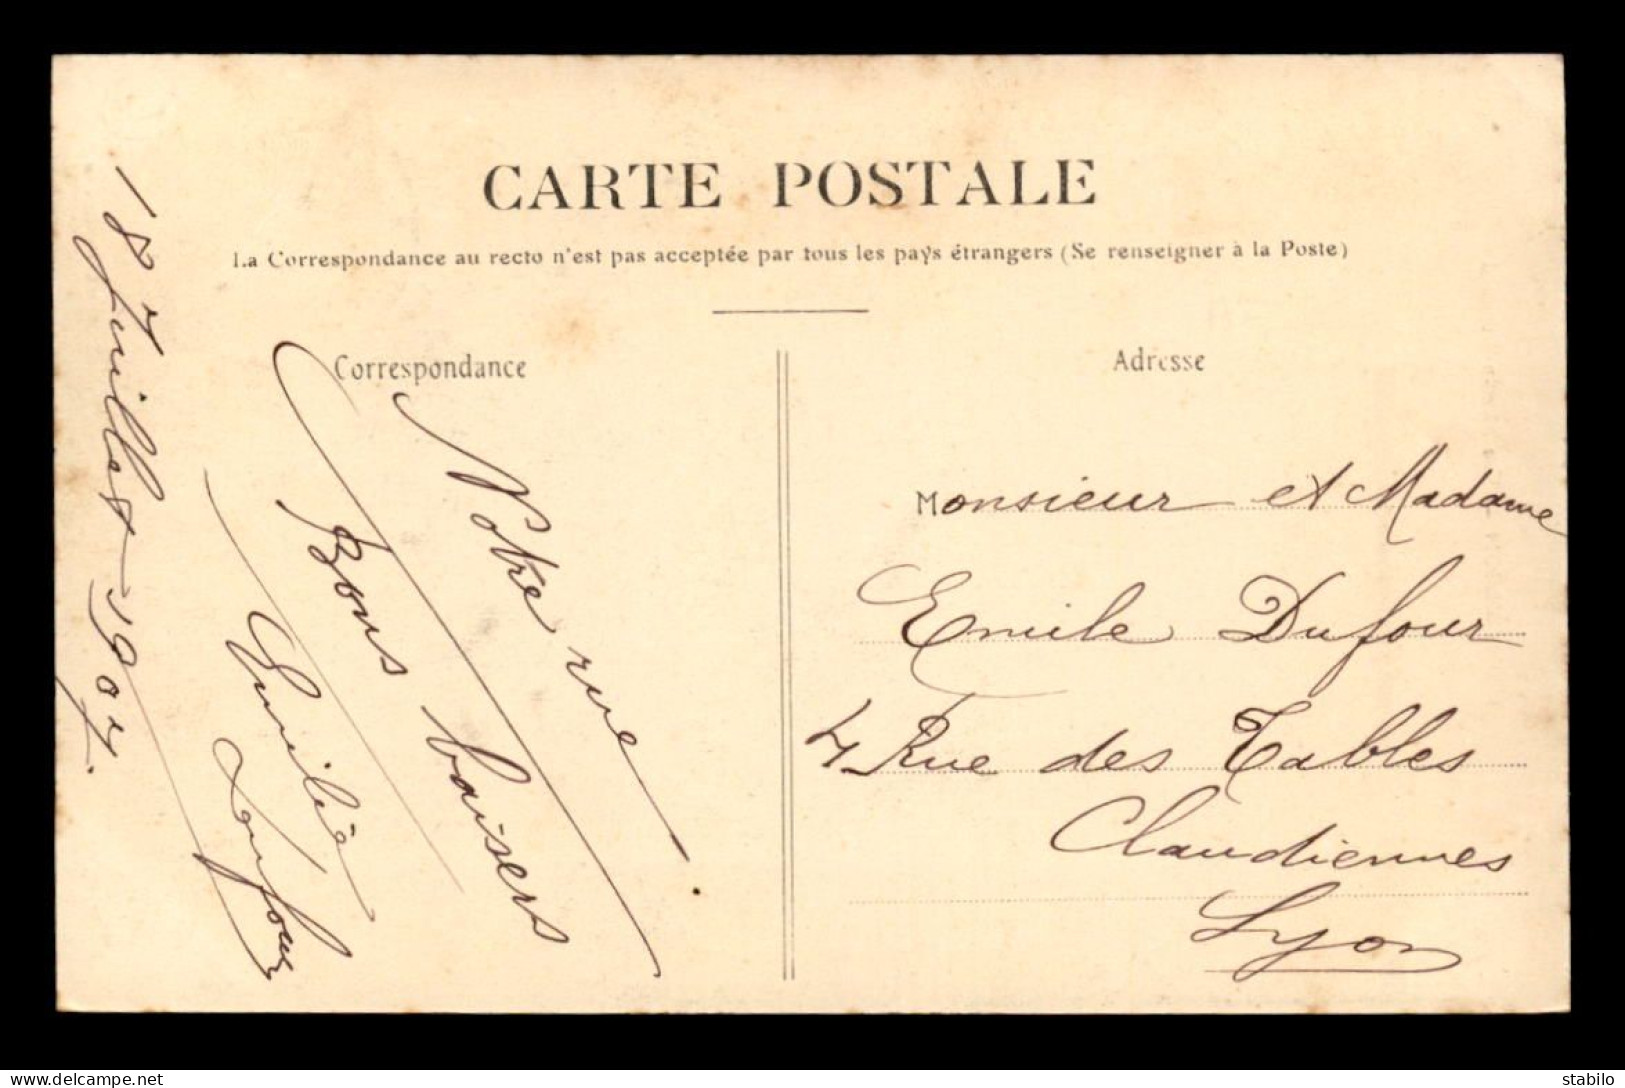 CARTE POSTALE
La Correspondance au recto n'est pas acceptée par tous les pays étrangers (Se renseigner à la Poste)
Correspondance
Adresse
18 Juillet 1907.
Notre rue.
Bons baisers
Emilie
Monsieur et Madame
Emile Dufour
4 Rue des Tables
Claudiennes
Lyon
delcampe.net
stabilo